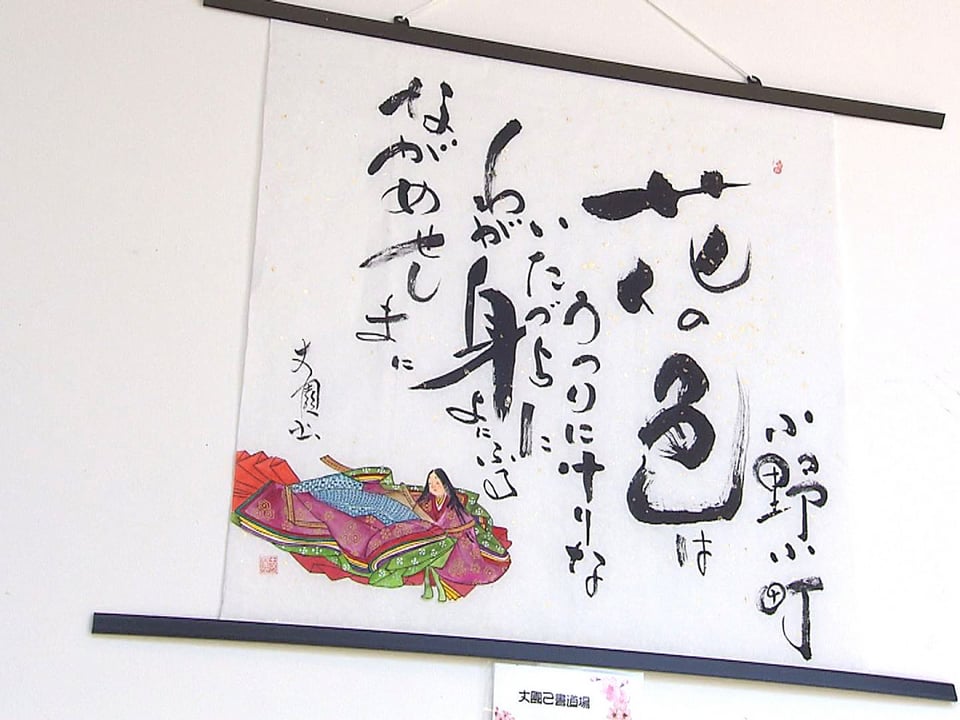 小野小町
花の色は
うつりにけりな
いたづらに
わが身
よにふる
ながめせしまに
丈園書
丈園己書道場